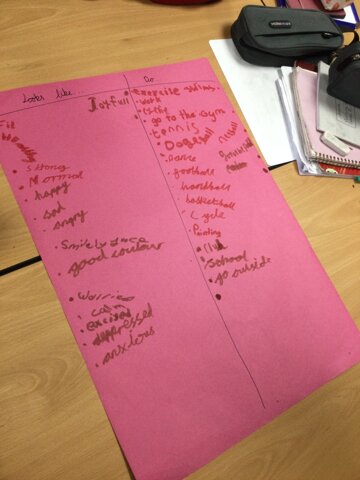 Looks like...
Joyfull
Fit
Healthy
Strong
Normal
happy
sad
angry
Smiley face
good coulour
Worries
calm
excised
depressed
anxious
Do
exercise swims.
work
go to the gym
tennis
Dogeball
netball
Dance
football
handball
basketball
Cycle
Painting
Club
school
go outside